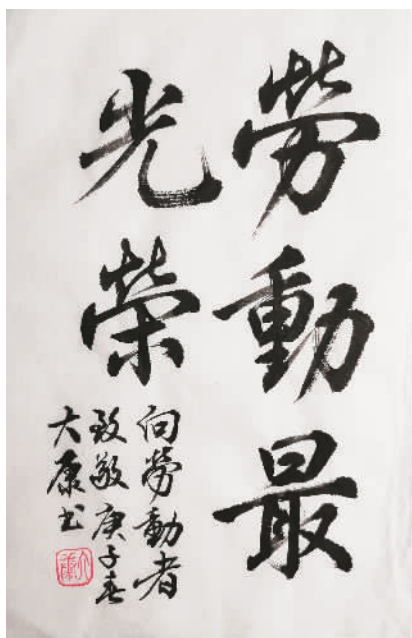 勞動最
光榮
向勞動者
致敬庚子春
大康书
大康